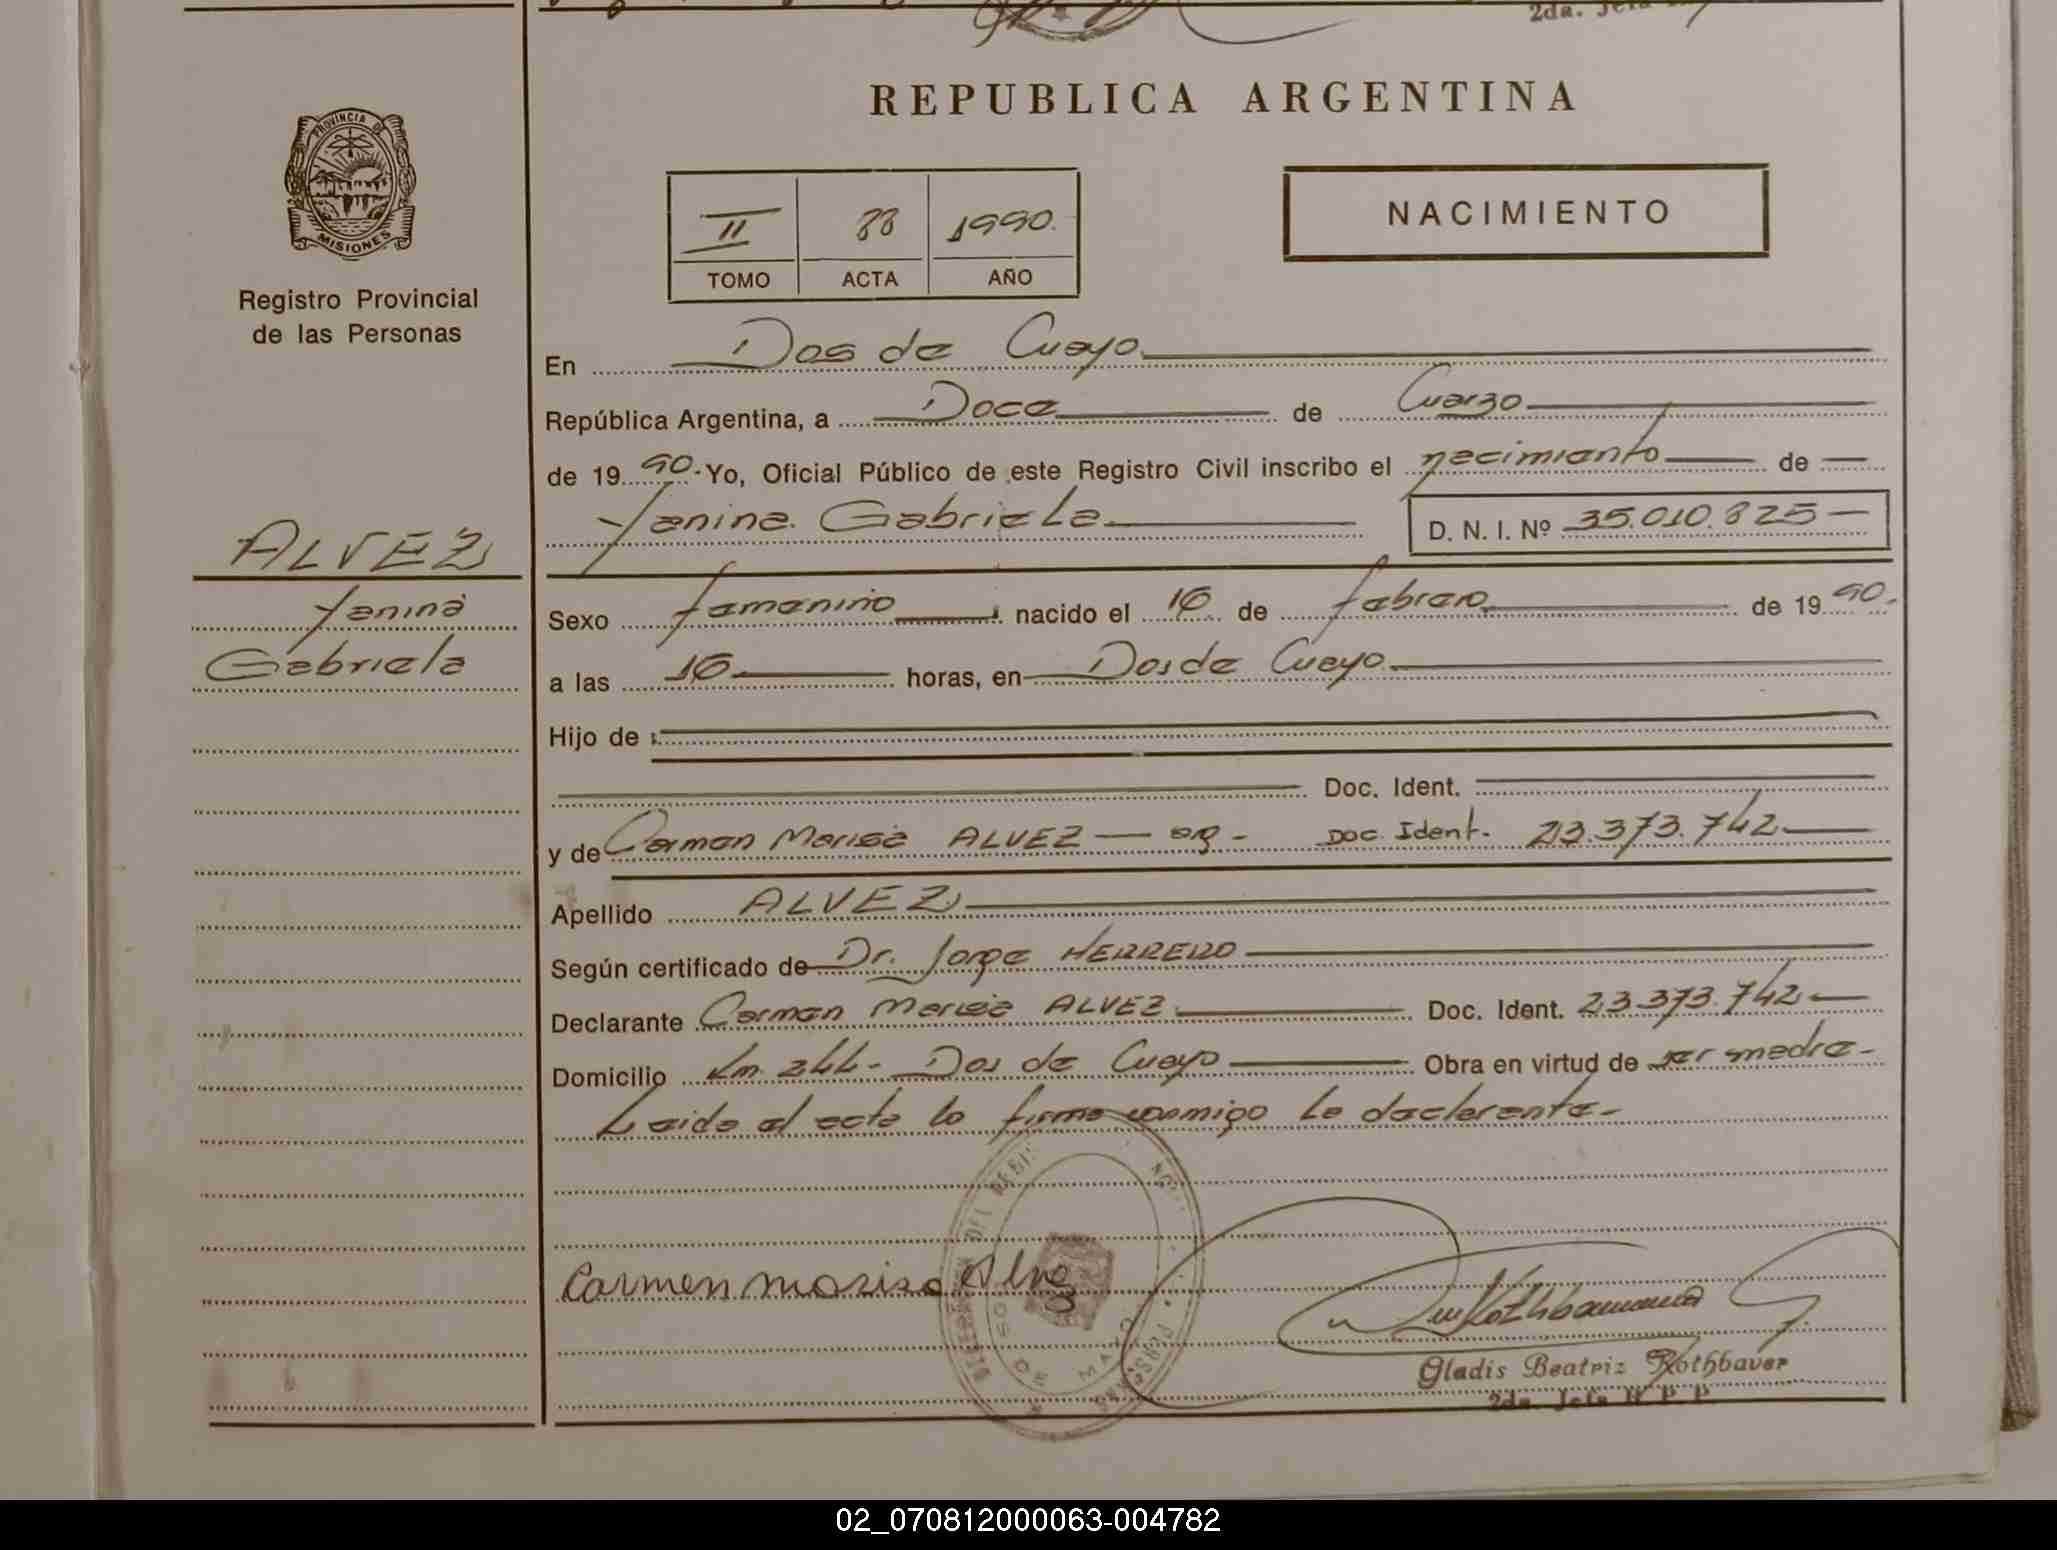 2da. Jefa
REPUBLICA ARGENTINA
PROVINCIA DE
MISIONES
Registro Provincial
de las Personas
II 88 1990.
TOMO ACTA AÑO
NACIMIENTO
En Dos de Mayo
República Argentina, a Doce de Marzo
de 19 90.- Yo, Oficial Público de este Registro Civil inscribo el nacimiento de
Yanina Gabriela D. N. I. Nº 35.010.825
ALVEZ
Yanina
Gabriela
Sexo femenino nacido el 16 de febrero de 19 90.
a las 16 horas, en Dos de Mayo
Hijo de
Doc. Ident.
y de Carmen Marisa ALVEZ arg- Doc Ident. 23.373.742
Apellido ALVEZ
Según certificado de Dr. Jorge HERRERO
Declarante Carmen Marisa ALVEZ Doc. Ident. 23.373.742
Domicilio Km. 244 - Dos de Mayo Obra en virtud de ser madre-
Leida el acta la firma conmigo la declarante-
Carmen Marisa Alvez
DOS DE MAYO
Gladis Beatriz Rothbauer
2da. Jefa R P P
02_070812000063-004782